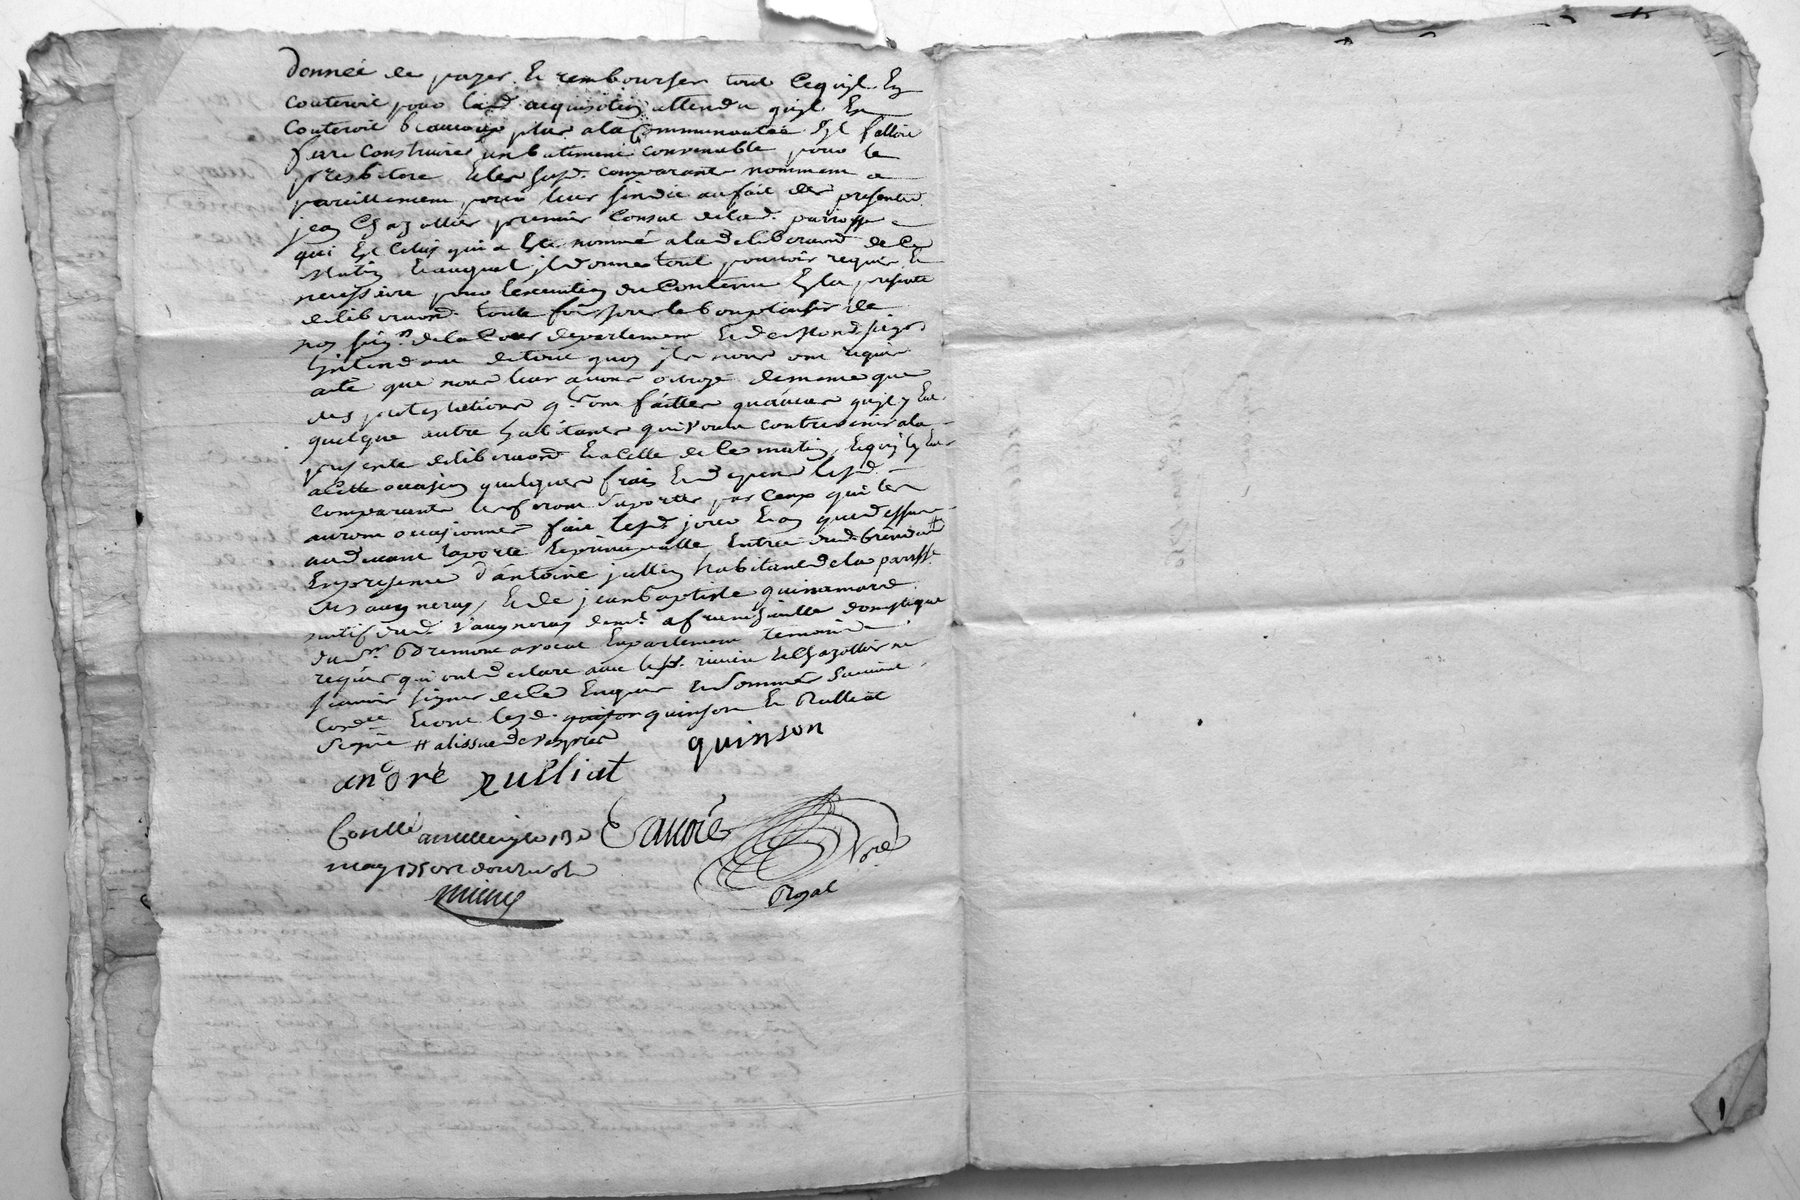 donneé de payer & rembourser tout cequil En
couteroit pour lad. acquisition attendu quil En
couteroit beaucoup plus a la Communautée sil falloit
faire construire un batiment convenable pour le
presbitere & les susd. comparants nomment
pareillement pour leur sindic au fait des presentes
jean Chazottier premier Consul de lad. parroisse
qui Est celuy qui a Esté nommé a la deliberaon de ce
matin Et auquel ils donnent tout pouvoir requis &
necessaire pour lexecution du Contenu En la presente
deliberaon. toute fois sous le bon plaisir de
nos seigrs de la Cour de parlement Et de Mond. seigr
Lintendant de tout quoy ils nous ont requis
acte que nous leur avons octroyé de meme que
des protestations qls ont faittes quau cas quil y Eut
quelque autre habitants qui voulu contrevenir a la
presente deliberaon Et a celle de ce matin, Et quil y Eut
a cette occasion quelques frais Et depens lesd.
comparants les feront suporter par Ceux qui les
auront occasionnés fait lesd. jour Et an que dessus
au devant la porte & principalle Entrée dud.
En presence d'antoine jullien habitant de la parroisse
de vaugneray, Et de jean baptiste guinamard
natif dud. vaugneray demt. a francheville domestique
du sr. Dremont avocat En parlement temoins
requis qui ont declaré avec lesd. riviere Et Chazottier ne
scavoir signer de ce Enquis Et sommés suivant
lordce Et ont lesd. quinson & Rulliat
signé # a lissue de vespres
quinson
andré rulliat
Conllé a le 13e
may 1750
favre
Nore
Royal